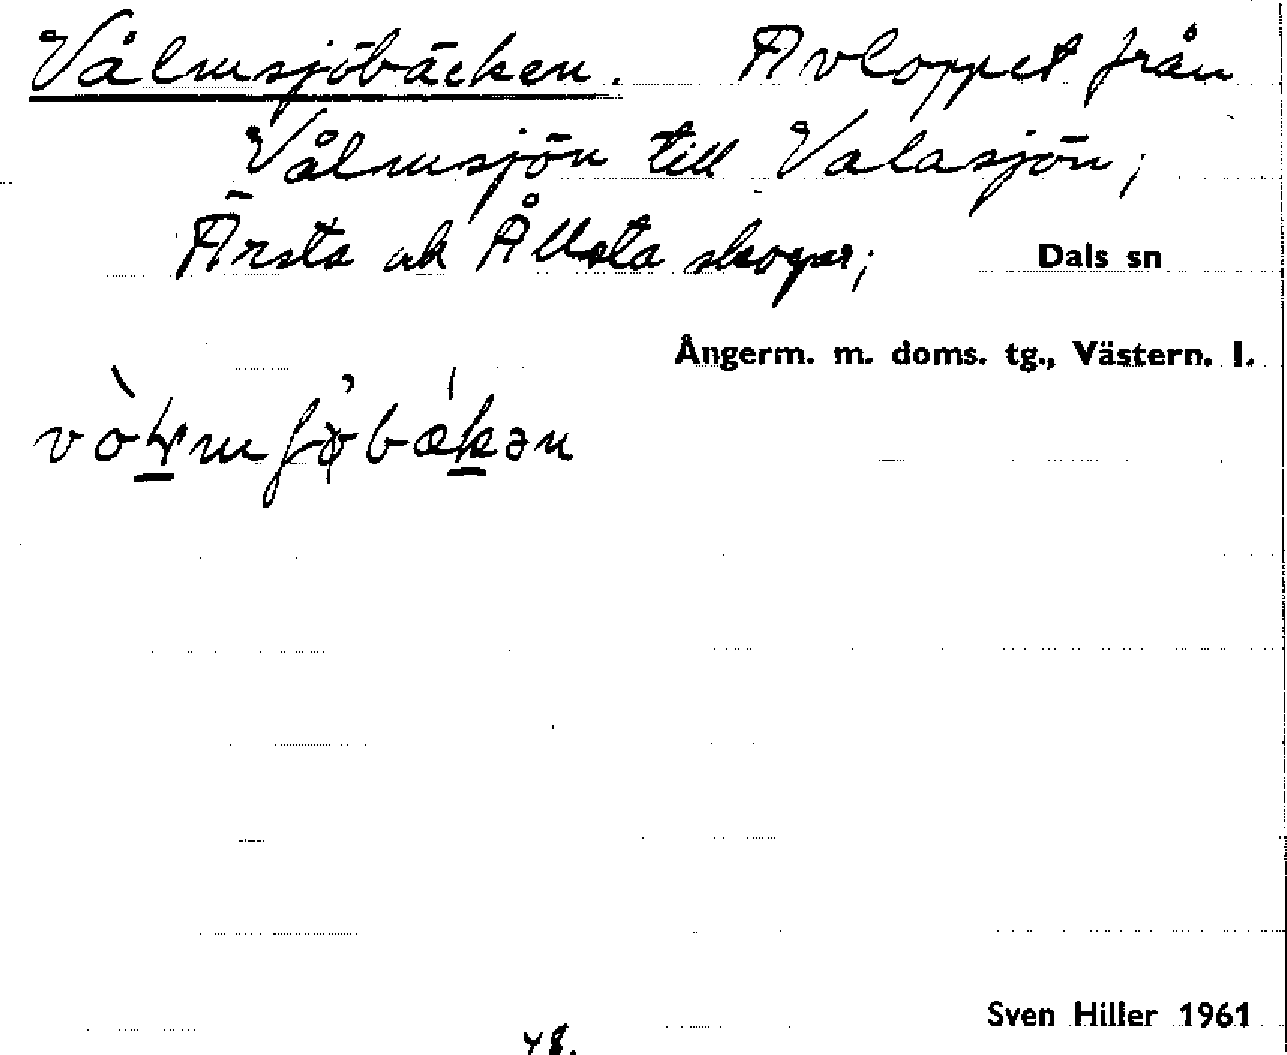 Vålmsjöbäcken. Avloppet från
Vålmsjön till Valasjön;
Ärsta och Ållsta skogar; Dals sn
Ångerm. m. doms. tg., Västern. l.
48.
Sven Hiller 1961